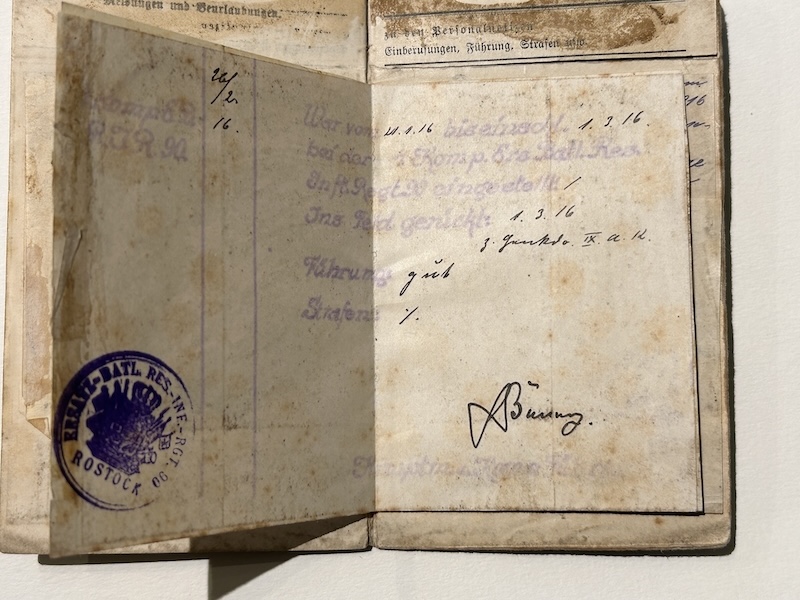 Meldungen und Beurlaubungen.
zu den Personalnotizen
Einberufungen, Führung, Strafen usw.
26/
/2.
16.
R.I.R. 90.
ERSATZ-BATL. RES.-INF.-RGT. 90
ROSTOCK
War vom 21.1.16 bis einschl. 1.3.16.
bei der 1 Komp. Ers. Batl. Res.
Inft. Regt. 90 eingestellt
Ins Feld gerückt: 1.3.16
z. Genkdo. IX. A.K.
Führung: gut
Strafen: /.
Hauptm. u. Komp.